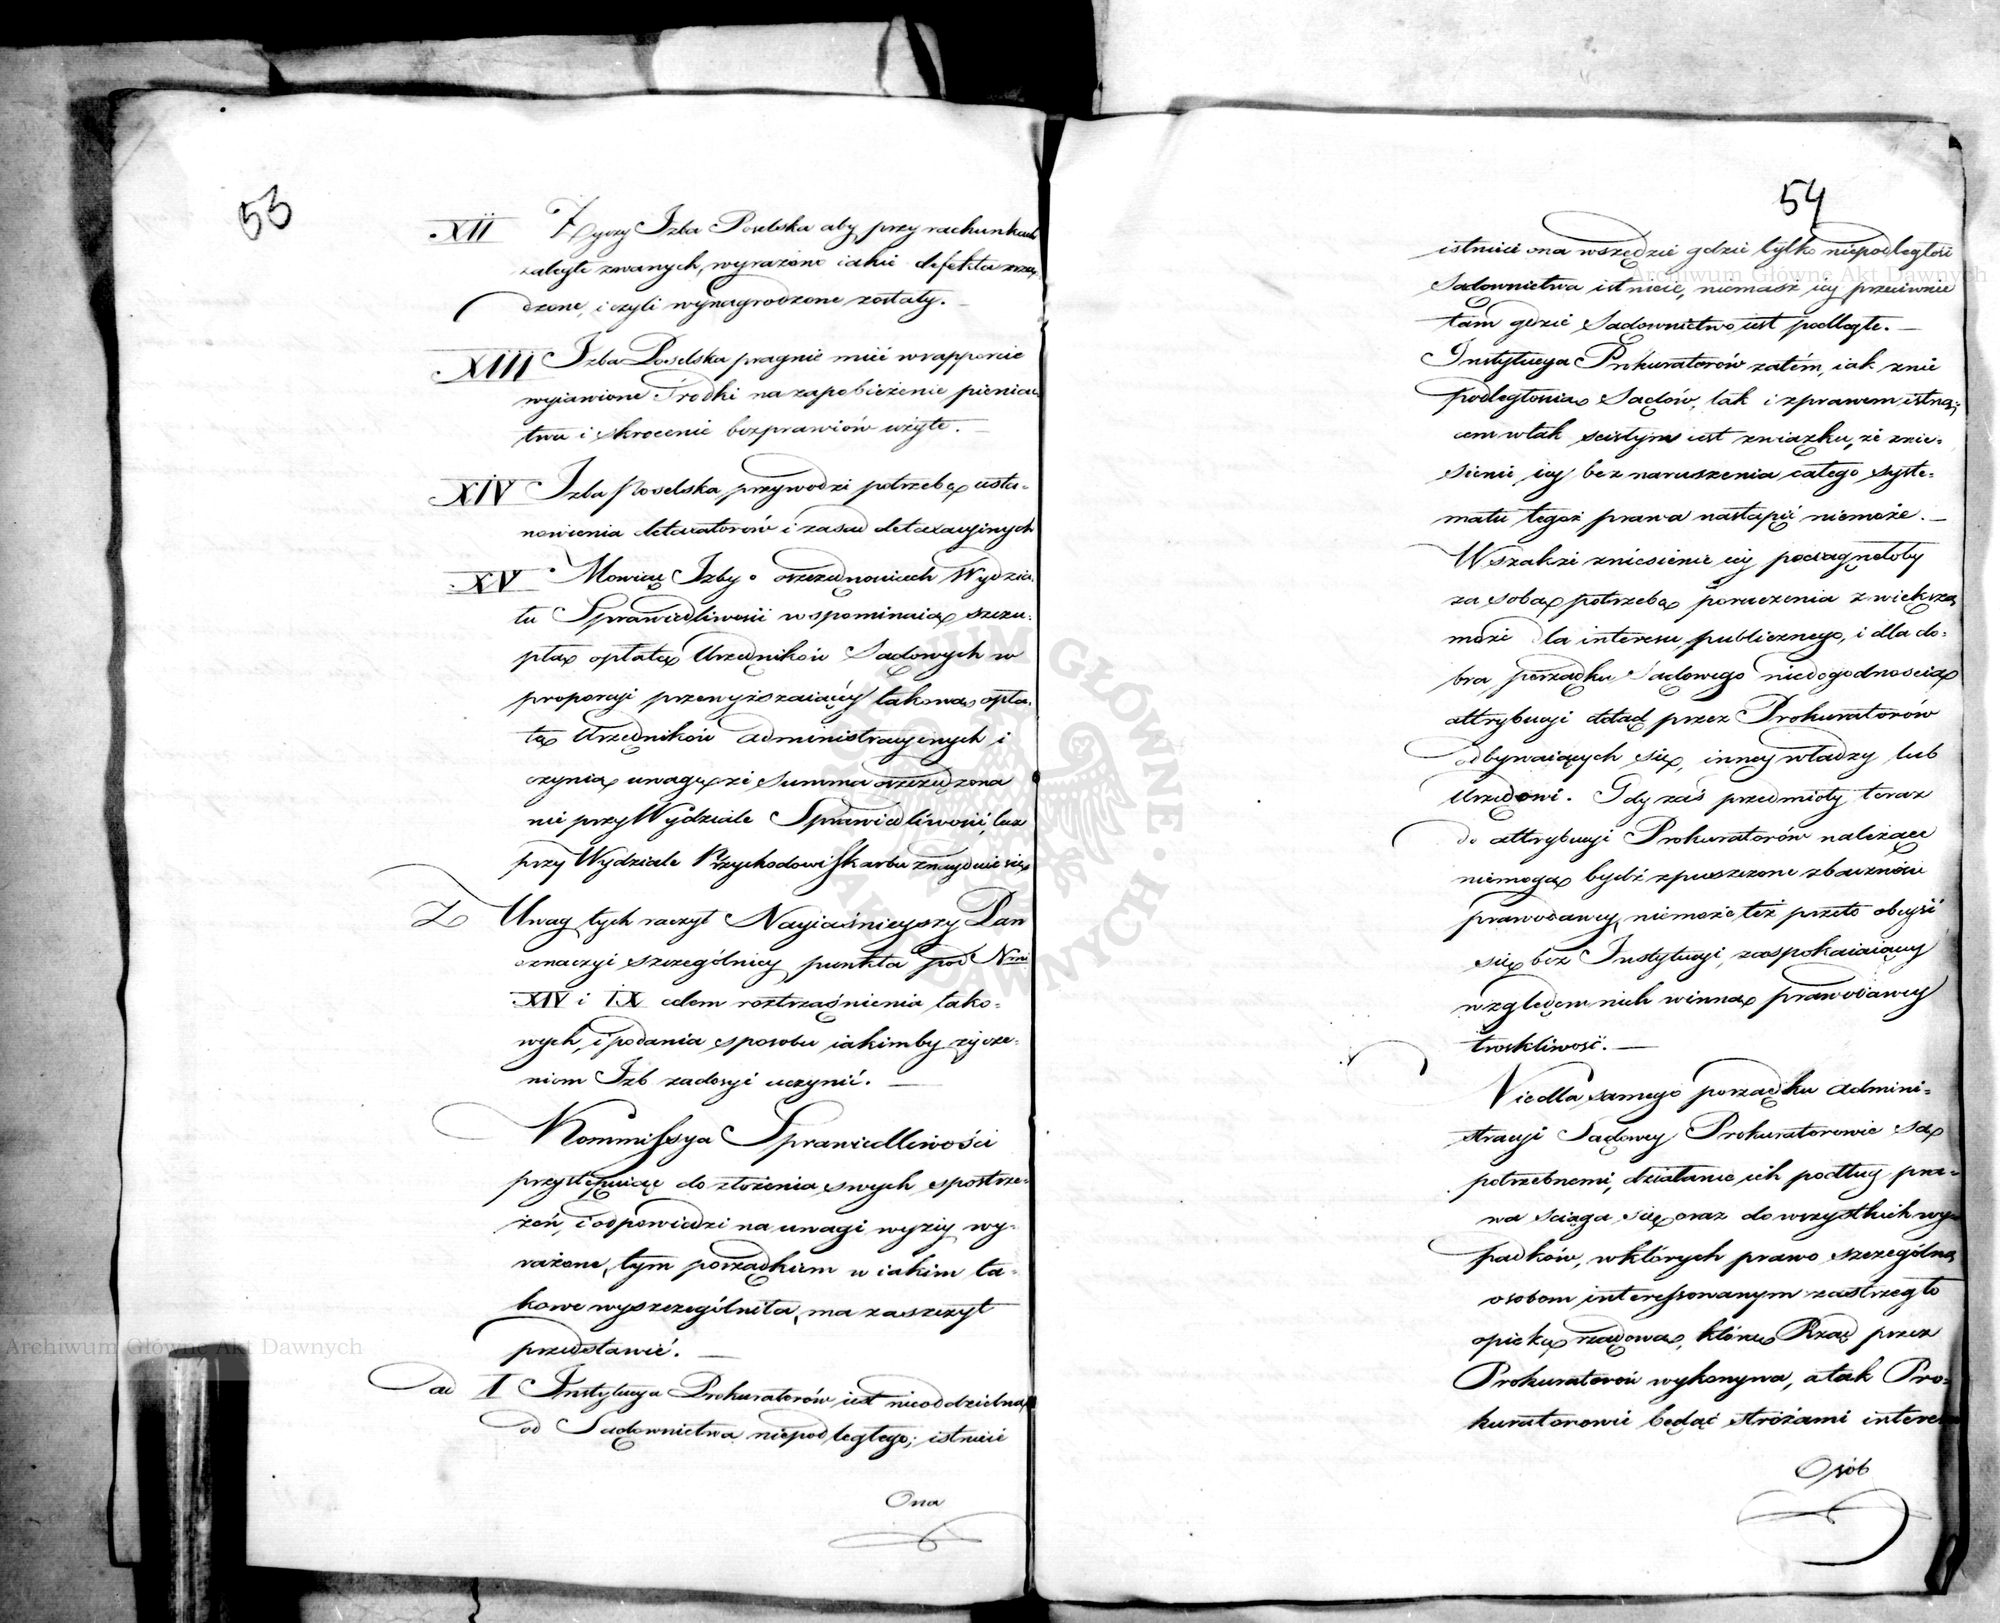 53
XII Życzy Izba Poselska aby przy rachunkach
zaległe zwanych, wyrażono iakie defekta zrzą-
dzone, i czyli wynagrodzone zostały. —
XIII Izba Poselska pragnie mieć w rapporcie
wyiawione Środki na zapobieżenie pieniac-
twu i skrocenie bezprawiów użyte. —
XIV Izba Poselska przywodzi potrzebę usta-
nowienia detaxatorów i zasad detaxacyinych
XV Mowiąc Izby o oszczędnościach Wydzia-
łu Sprawiedliwości wspominaią szczu-
płą opłatę Urzędników Sądowych w
proporcyi przewyższaiącéy takową opła-
tę Urzędników Administracyinych i
czynią uwagę że Summa oszczędzona
nie przy Wydziale Sprawiedliwości, lecz
przy Wydziale Przychodowi Skarbu znayduie się
Z Uwag tych raczył Nayiaśnieyszy Pan
oznaczyć szczególniey punkta pod Nmi
XIV i IX celem roztrząśnienia tako-
wych, i podania sposobu iakimby życze-
niom Izb zadosyć uczynić. —
Kommissya Sprawiedliwości
przystępuiąc do złożenia swych spostrze-
żeń, i odpowiedzi na uwagi wyżey wy-
rażone, tym porządkiem w iakim ta-
kowe wyszczególniła, ma zaszczyt
przedstawić. —
ad I Instytucya Prokuratorów iest nieoddzielną
od Sądownictwa niepodległego; istnieie
Ona
54
istnieie ona wszędzie gdzie tylko niepodległość
Sądownictwa istnieie, niemasz iey przeciwnie
tam gdzie Sądownictwo iest podległe. —
Instytucya Prokuratorów zatém, iak z nie
podległością Sądów, tak i z prawem istną-
cem w tak scisłym iest związku, że znie-
sienie iey bez naruszenia całego syste-
matu tegoż prawa nastąpić niemoże. —
Wszakże zniesienie iey pociągnęłoby
za sobą potrzebę poruczenia z większą
może dla interesu publicznego, i dla do-
bra porządku Sądowego niedogodnością
attrybucyi dotąd przez Prokuratorów
odbywaiących się, inney władzy lub
Urzędowi. Gdy zaś przedmioty teraz
do attrybucyi Prokuratorów należące
niemogą bydź spuszczone z baczności
prawodawcy, niemoże też przeto obeyść
się bez Instytucyi, zaspokaiaiącey
względem nich winną prawodawcy
troskliwość. —
Nie dla samego porządku admini-
stracyi Sądowey Prokuratorowie są
potrzebnemi, działanie ich podług pra-
wa sciąga się oraz do wszystkich wy-
padków, w których prawo szczególną
osobom interessowanym zastrzegło
opiekę rządową, którą Rząd przez
Prokuratorów wykonywa, a tak Pro-
kuratorowie będąc stróżami interes
Osób
Archiwum Główne Akt Dawnych
Archiwum Główne Akt Dawnych
ARCHIWUM GŁÓWNE AKT DAWNYCH